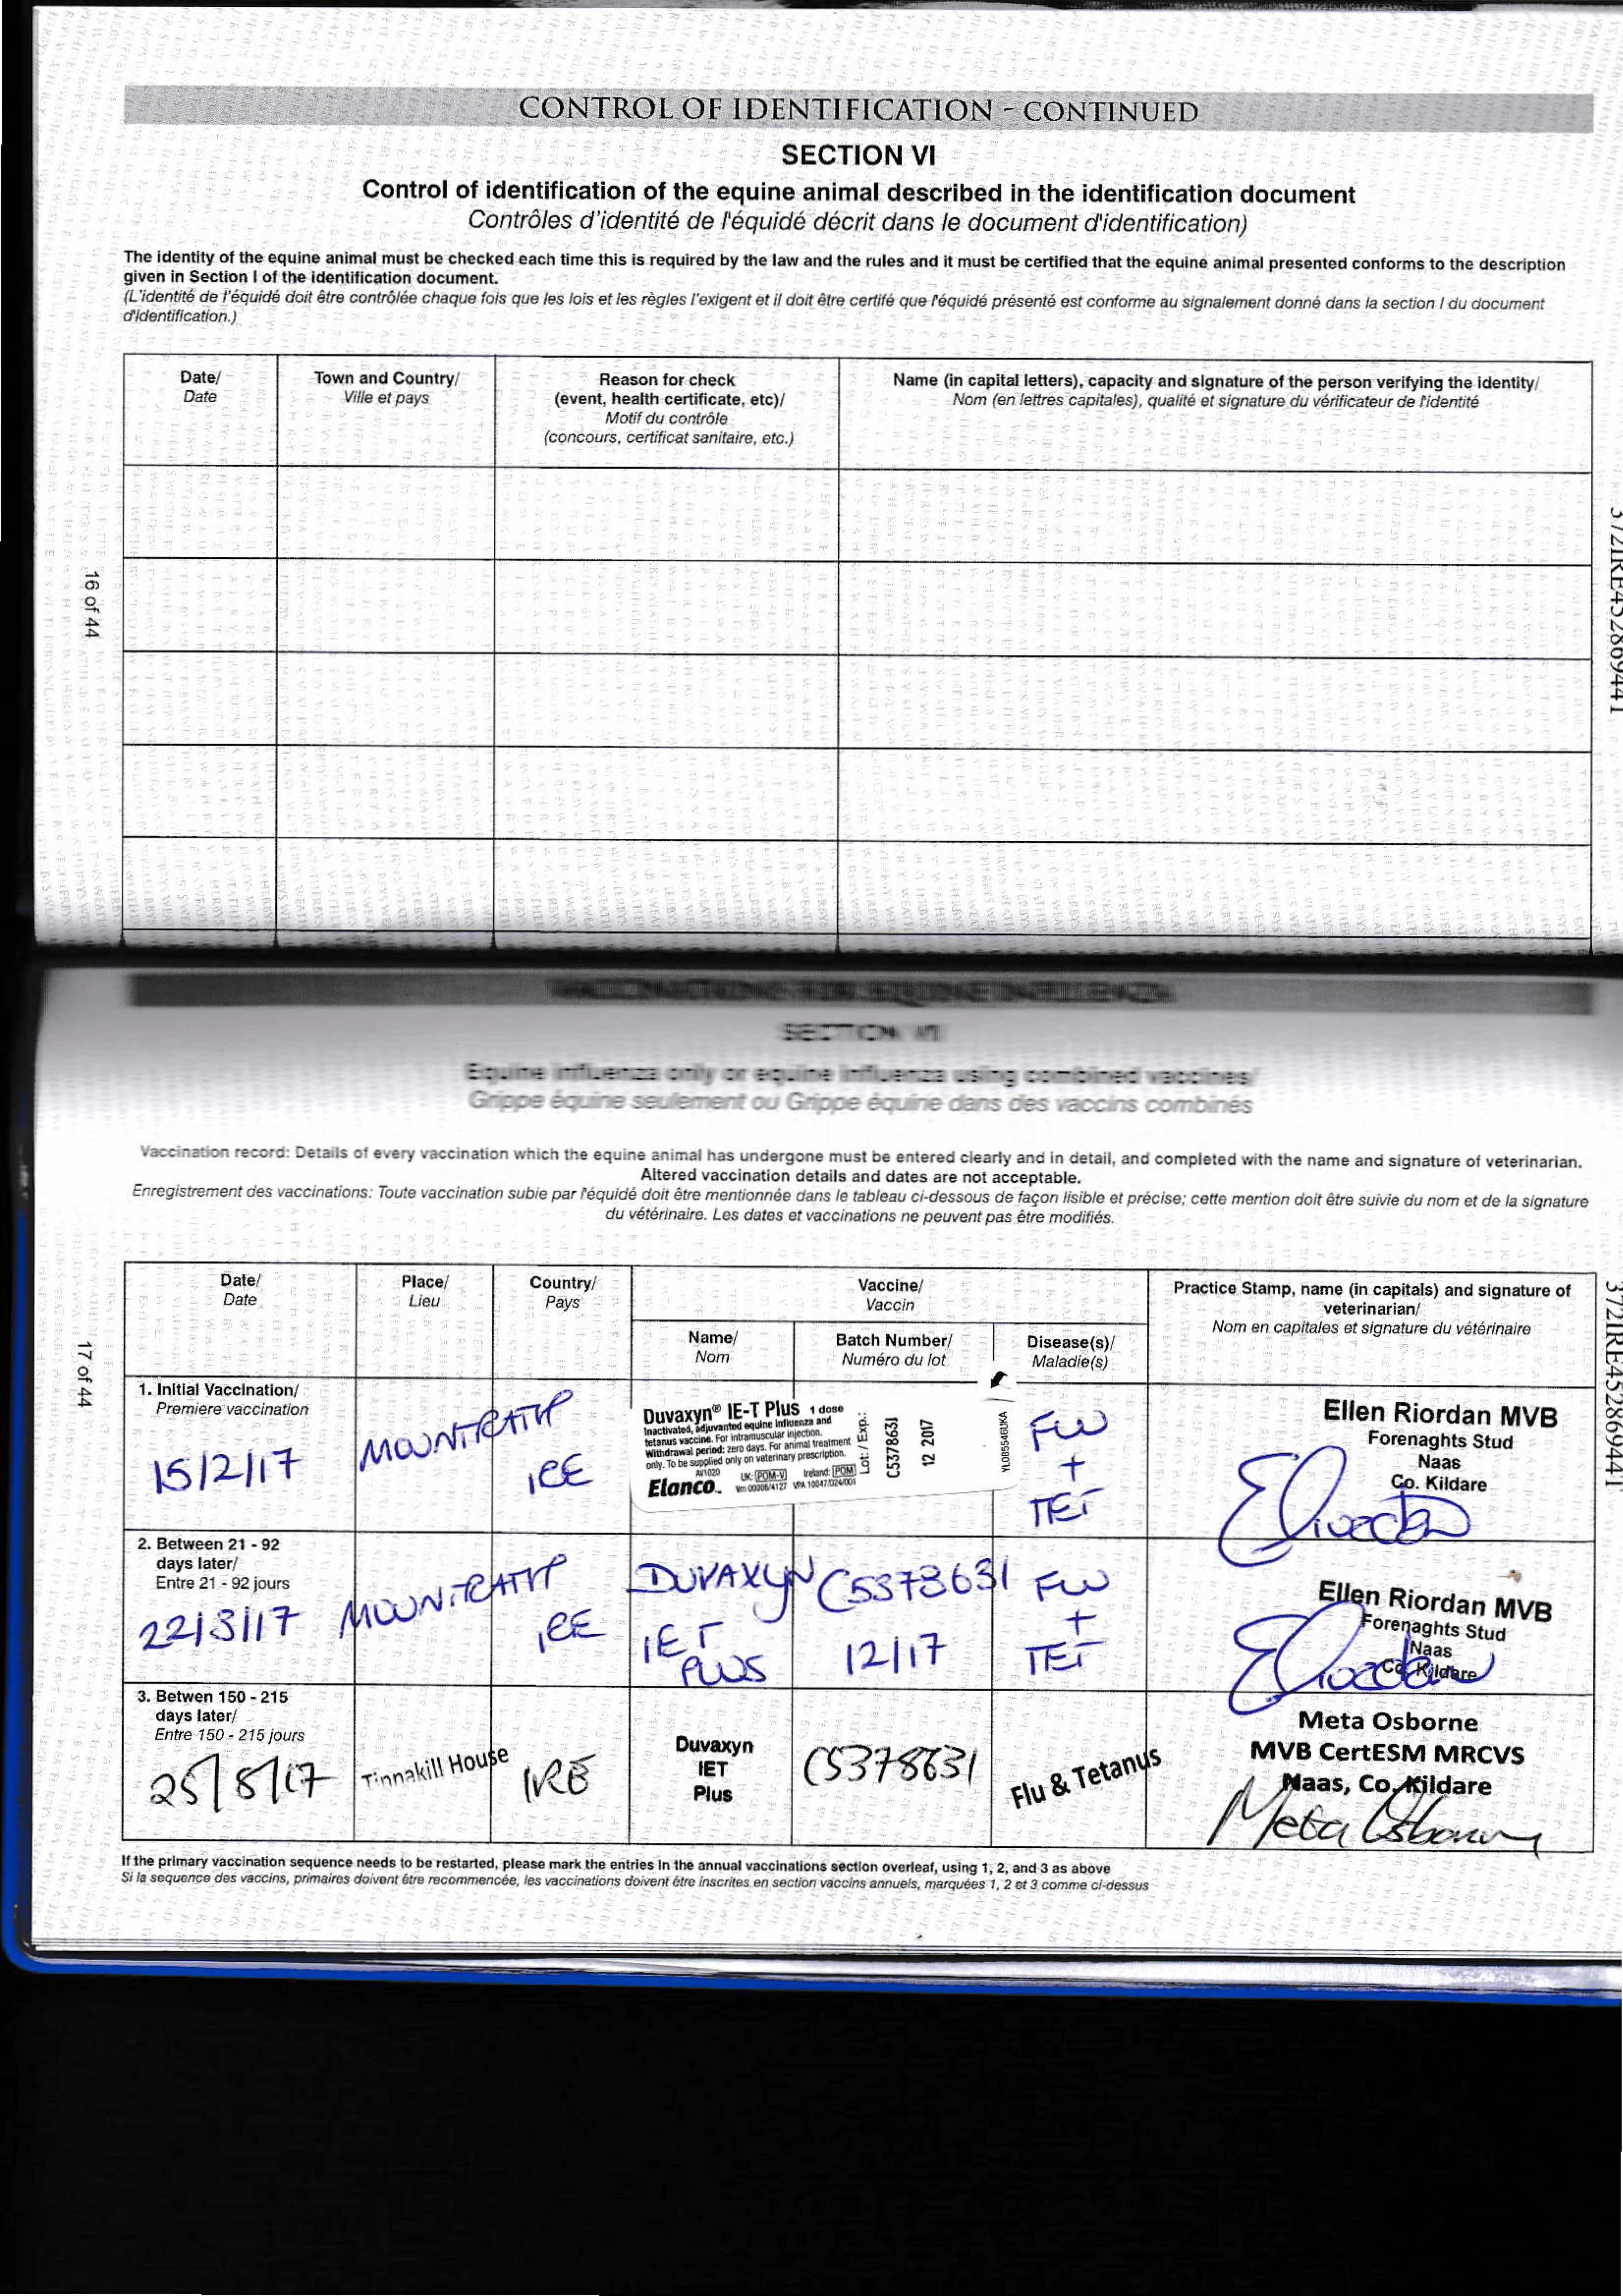 CONTROL OF IDENTIFICATION - CONTINUED
SECTION VI
Control of identification of the equine animal described in the identification document
Contrôles d'identité de l'équidé décrit dans le document d'identification)
The identity of the equine animal must be checked each time this is required by the law and the rules and it must be certified that the equine animal presented conforms to the description
given in Section I of the identification document.
(L'identité de l'équidé doit être contrôlée chaque fois que les lois et les règles l'exigent et il doit être certifé que l'équidé présenté est conforme au signalement donné dans la section I du document
d'identification.)
Date/
Date
Town and Country/
Ville et pays
Reason for check
(event, health certificate, etc)/
Motif du contrôle
(concours, certificat sanitaire, etc.)
Name (in capital letters), capacity and signature of the person verifying the identity/
Nom (en lettres capitales), qualité et signature du vérificateur de l'identité
16 of 44
372IRE45286944I
VACCINATIONS FOR EQUINE INFLUENZA
SECTION VII
Equine influenza only or equine influenza using combined vaccines/
Grippe équine seulement ou Grippe équine dans des vaccins combinés
Vaccination record: Details of every vaccination which the equine animal has undergone must be entered clearly and in detail, and completed with the name and signature of veterinarian.
Altered vaccination details and dates are not acceptable.
Enregistrement des vaccinations: Toute vaccination subie par l'équidé doit être mentionnée dans le tableau ci-dessous de façon lisible et précise; cette mention doit être suivie du nom et de la signature
du vétérinaire. Les dates et vaccinations ne peuvent pas être modifiés.
Date/
Date
Place/
Lieu
Country/
Pays
Vaccine/
Vaccin
Name/
Nom
Batch Number/
Numéro du lot
Disease(s)/
Maladie(s)
Practice Stamp, name (in capitals) and signature of
veterinarian/
Nom en capitales et signature du vétérinaire
17 of 44
372IRE45286944I
1. Initial Vaccination/
Premiere vaccination
15/2/17
MOUNTRATH
IRE
Duvaxyn® IE-T Plus 1 dose
Inactivated, adjuvanted equine influenza and
tetanus vaccine. For intramuscular injection.
Withdrawal period: zero days. For animal treatment
only. To be supplied only on veterinary prescription.
AV1020 UK: POM-V Ireland: POM
Elanco. Vm 00006/4127 VPA 10047/024/001
Lot: / Exp.:
C537863I
12 2017
YL085546UKA
FLU
+
TET
Ellen Riordan MVB
Forenaghts Stud
Naas
Co. Kildare
2. Between 21 - 92
days later/
Entre 21 - 92 jours
22/3/17
MOUNTRATH
IRE
DUVAXYN
IET
PLUS
C5378631
12/17
FLU
+
TET
Ellen Riordan MVB
Forenaghts Stud
Naas
Co. Kildare
3. Betwen 150 - 215
days later/
Entre 150 - 215 jours
25/8/17
Tinnakill House
IRE
Duvaxyn
IET
Plus
C5378631
Flu & Tetanus
Meta Osborne
MVB CertESM MRCVS
Naas, Co. Kildare
Meta Osborne
If the primary vaccination sequence needs to be restarted, please mark the entries in the annual vaccinations section overleaf, using 1, 2, and 3 as above
Si la sequence des vaccins, primaires doivent être recommencée, les vaccinations doivent être inscrites en section vaccins annuels, marquées 1, 2 et 3 comme ci-dessus